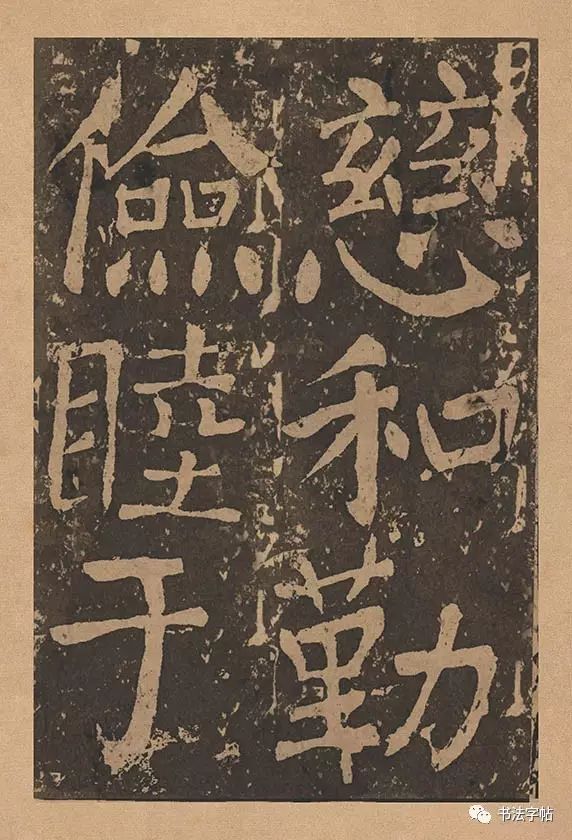 慈和勤
儉睦于
书法字帖